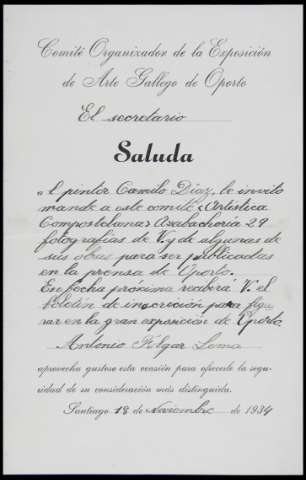 Comité Organizador de la Exposición
de Arte Gallego de Oporto
El secretario
Saluda
al pintor Camilo Díaz, le invito
mande a este comité <Artistica
Compostelana> Azabachería 29
fotografias de V. y de algunas de
sus obras para ser publicadas
en la prensa de Oporto.
En fecha próxima recibirá V. el
boletin de inscrición para figu
rar en la gran exposición de Oporto
Antonio Folgar Lema
aprovecha gustoso esta ocasión para ofrecerle la segu-
ridad de su consideración más distinguida.
Santiago 18 de Noviembre de 1934